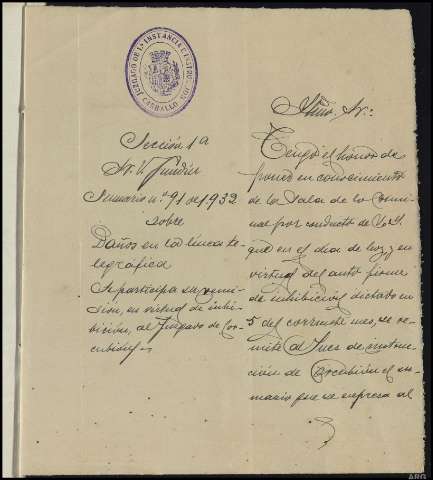 JUZGADO DE 1ª INSTANCIA E INSTRUCCION
CARBALLO
Sección 1ª
Sr. V.
Sumario nº 91 de 1932
sobre
Daños en la línea te-
legráfica
Se participa su remi-
sion, en virtud de inhi-
bición, al Juzgado de Cor-
cubión
Iltmo. Sr.:
Tengo el honor de
poner en conocimiento
de la Sala de lo Crimi-
nal por conducto de V.I.
que en el dia de hoy y en
virtud del auto firme
de inhibición dictado en
5 del corriente mes, se re-
mite al Juez de instruc-
ción de Corcubión el su-
mario que se expresa al
ARG